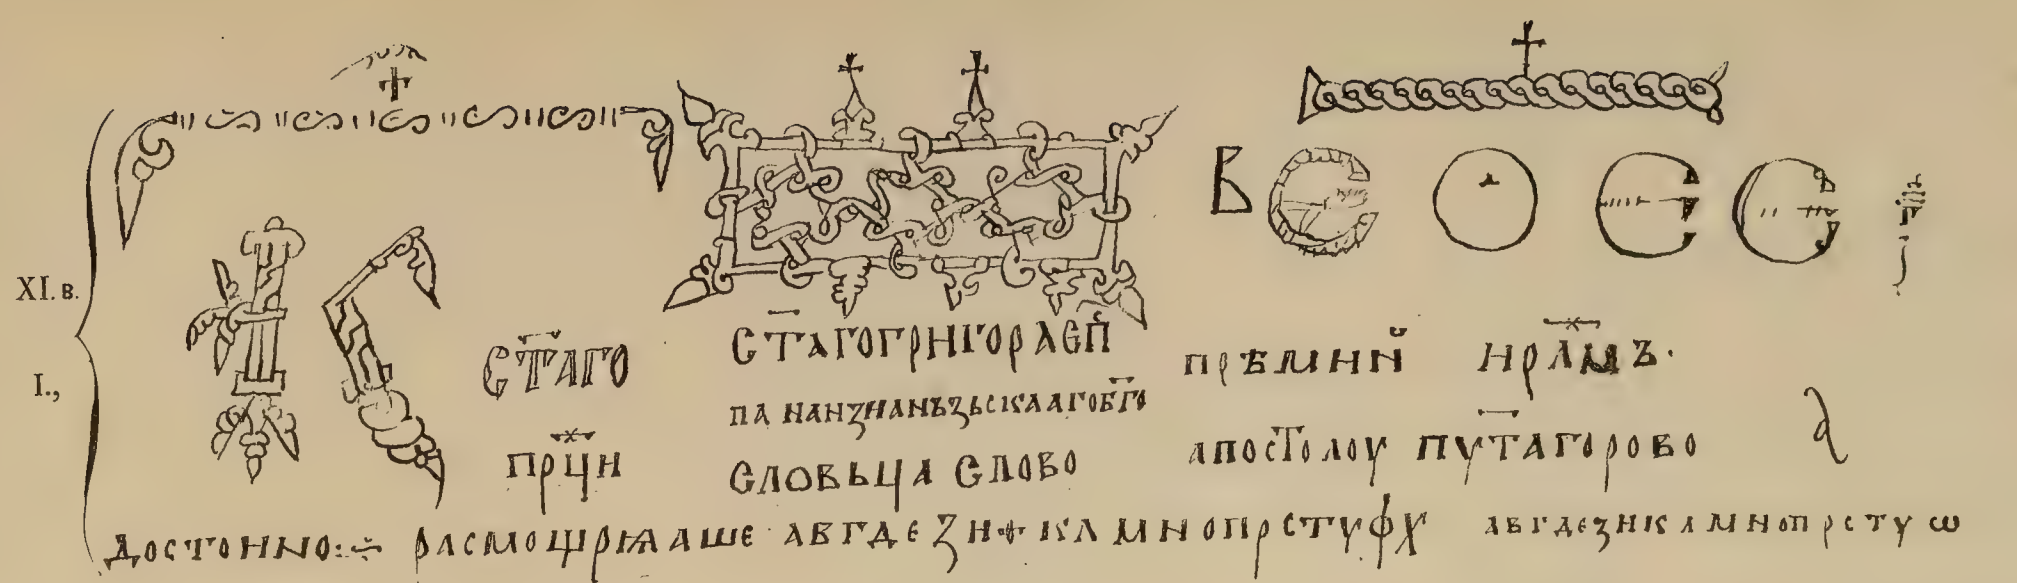 XI. в.
I.,
В Є О Є Є
СТ҃АГО
ПРЦ҃Н
СТ҃АГОГРНГОРА ЄП
ПА НАНЗНАНЬЗЬСКААГОБГ҃О
СЛОВЬЦА СЛОВО
ПРѢМНН НРЛ҃МЪ·
АПОСТОЛОУ ПУТ҃АГОРОВО
ДОСТОННО:÷ РАСМОЩРѨАШЕ АВГДЕЗН КЛМНОПРСТУФХ АВГДЕЗНКЛМНОПРСТУѠ